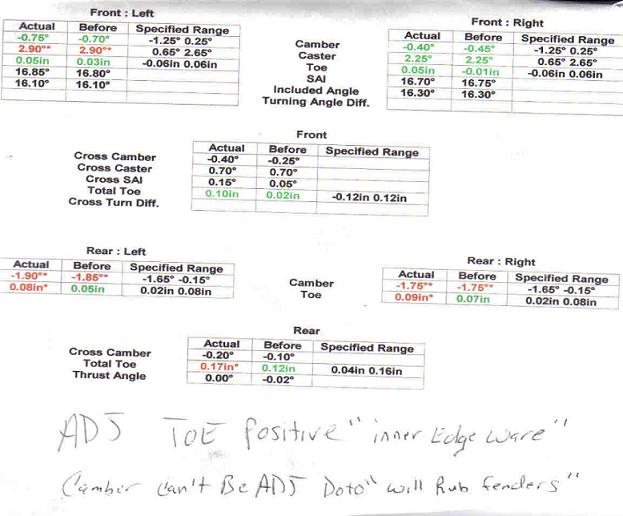 Front : Left
Actual Before Specified Range
-0.75° -0.70° -1.25° 0.25°
2.90°* 2.90°* 0.65° 2.65°
0.05in 0.03in -0.06in 0.06in
16.85° 16.80°
16.10° 16.10°
Camber
Caster
Toe
SAI
Included Angle
Turning Angle Diff.
Front : Right
Actual Before Specified Range
-0.40° -0.45° -1.25° 0.25°
2.25° 2.25° 0.65° 2.65°
0.05in -0.01in -0.06in 0.06in
16.70° 16.75°
16.30° 16.30°
Front
Actual Before Specified Range
Cross Camber -0.40° -0.25°
Cross Caster 0.70° 0.70°
Cross SAI 0.15° 0.05°
Total Toe 0.10in 0.02in -0.12in 0.12in
Cross Turn Diff.
Rear : Left
Actual Before Specified Range
-1.90°* -1.85°* -1.65° -0.15°
0.08in* 0.05in 0.02in 0.08in
Camber
Toe
Rear : Right
Actual Before Specified Range
-1.75°* -1.75°* -1.65° -0.15°
0.09in* 0.07in 0.02in 0.08in
Rear
Actual Before Specified Range
Cross Camber -0.20° -0.10°
Total Toe 0.17in* 0.12in 0.04in 0.16in
Thrust Angle 0.00° -0.02°
ADJ TOE Positive "inner Edge Ware"
Camber Can't Be ADJ Doto "will Rub fenders"